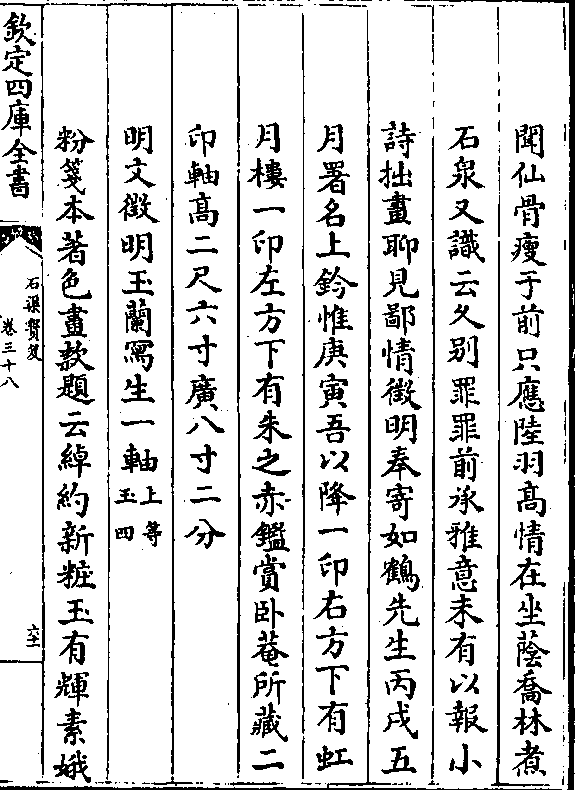 聞仙骨瘦于前只應陸羽髙情在坐蔭喬林煮
石泉又識云久别罪罪前承雅意未有以報小
詩拙畫聊見鄙情徵明奉寄如鶴先生丙戌五
月署名上鈐惟庚寅吾以降一印右方下有虹
月樓一印左方下有朱之赤鑑賞卧菴所藏二
印軸髙二尺六寸廣八寸二分
明文徵明玉蘭寫生一軸上等玉四
粉箋本著色畫款題云綽約新粧玉有輝素娥
欽定四庫全書
石渠寳笈
卷三十八
六十二